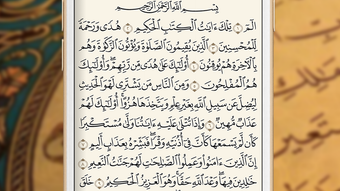 بِسْمِ ٱللَّهِ ٱلرَّحْمَٰنِ ٱلرَّحِيمِ
الٓمٓ تِلْكَ ءَايَٰتُ ٱلْكِتَٰبِ ٱلْحَكِيمِ هُدًى وَرَحْمَةً
لِّلْمُحْسِنِينَ ٱلَّذِينَ يُقِيمُونَ ٱلصَّلَوٰةَ وَيُؤْتُونَ ٱلزَّكَوٰةَ وَهُم
بِٱلْءَاخِرَةِ هُمْ يُوقِنُونَ أُو۟لَٰٓئِكَ عَلَىٰ هُدًى مِّن رَّبِّهِمْ وَأُو۟لَٰٓئِكَ
هُمُ ٱلْمُفْلِحُونَ وَمِنَ ٱلنَّاسِ مَن يَشْتَرِى لَهْوَ ٱلْحَدِيثِ
لِيُضِلَّ عَن سَبِيلِ ٱللَّهِ بِغَيْرِ عِلْمٍ وَيَتَّخِذَهَا هُزُوًا أُو۟لَٰٓئِكَ لَهُمْ
عَذَابٌ مُّهِينٌ وَإِذَا تُتْلَىٰ عَلَيْهِ ءَايَٰتُنَا وَلَّىٰ مُسْتَكْبِرًا
كَأَن لَّمْ يَسْمَعْهَا كَأَنَّ فِىٓ أُذُنَيْهِ وَقْرًا فَبَشِّرْهُ بِعَذَابٍ أَلِيمٍ
إِنَّ ٱلَّذِينَ ءَامَنُوا۟ وَعَمِلُوا۟ ٱلصَّٰلِحَٰتِ لَهُمْ جَنَّٰتُ ٱلنَّعِيمِ
خَٰلِدِينَ فِيهَا وَعْدَ ٱللَّهِ حَقًّا وَهُوَ ٱلْعَزِيزُ ٱلْحَكِيمُ خَلَقَ